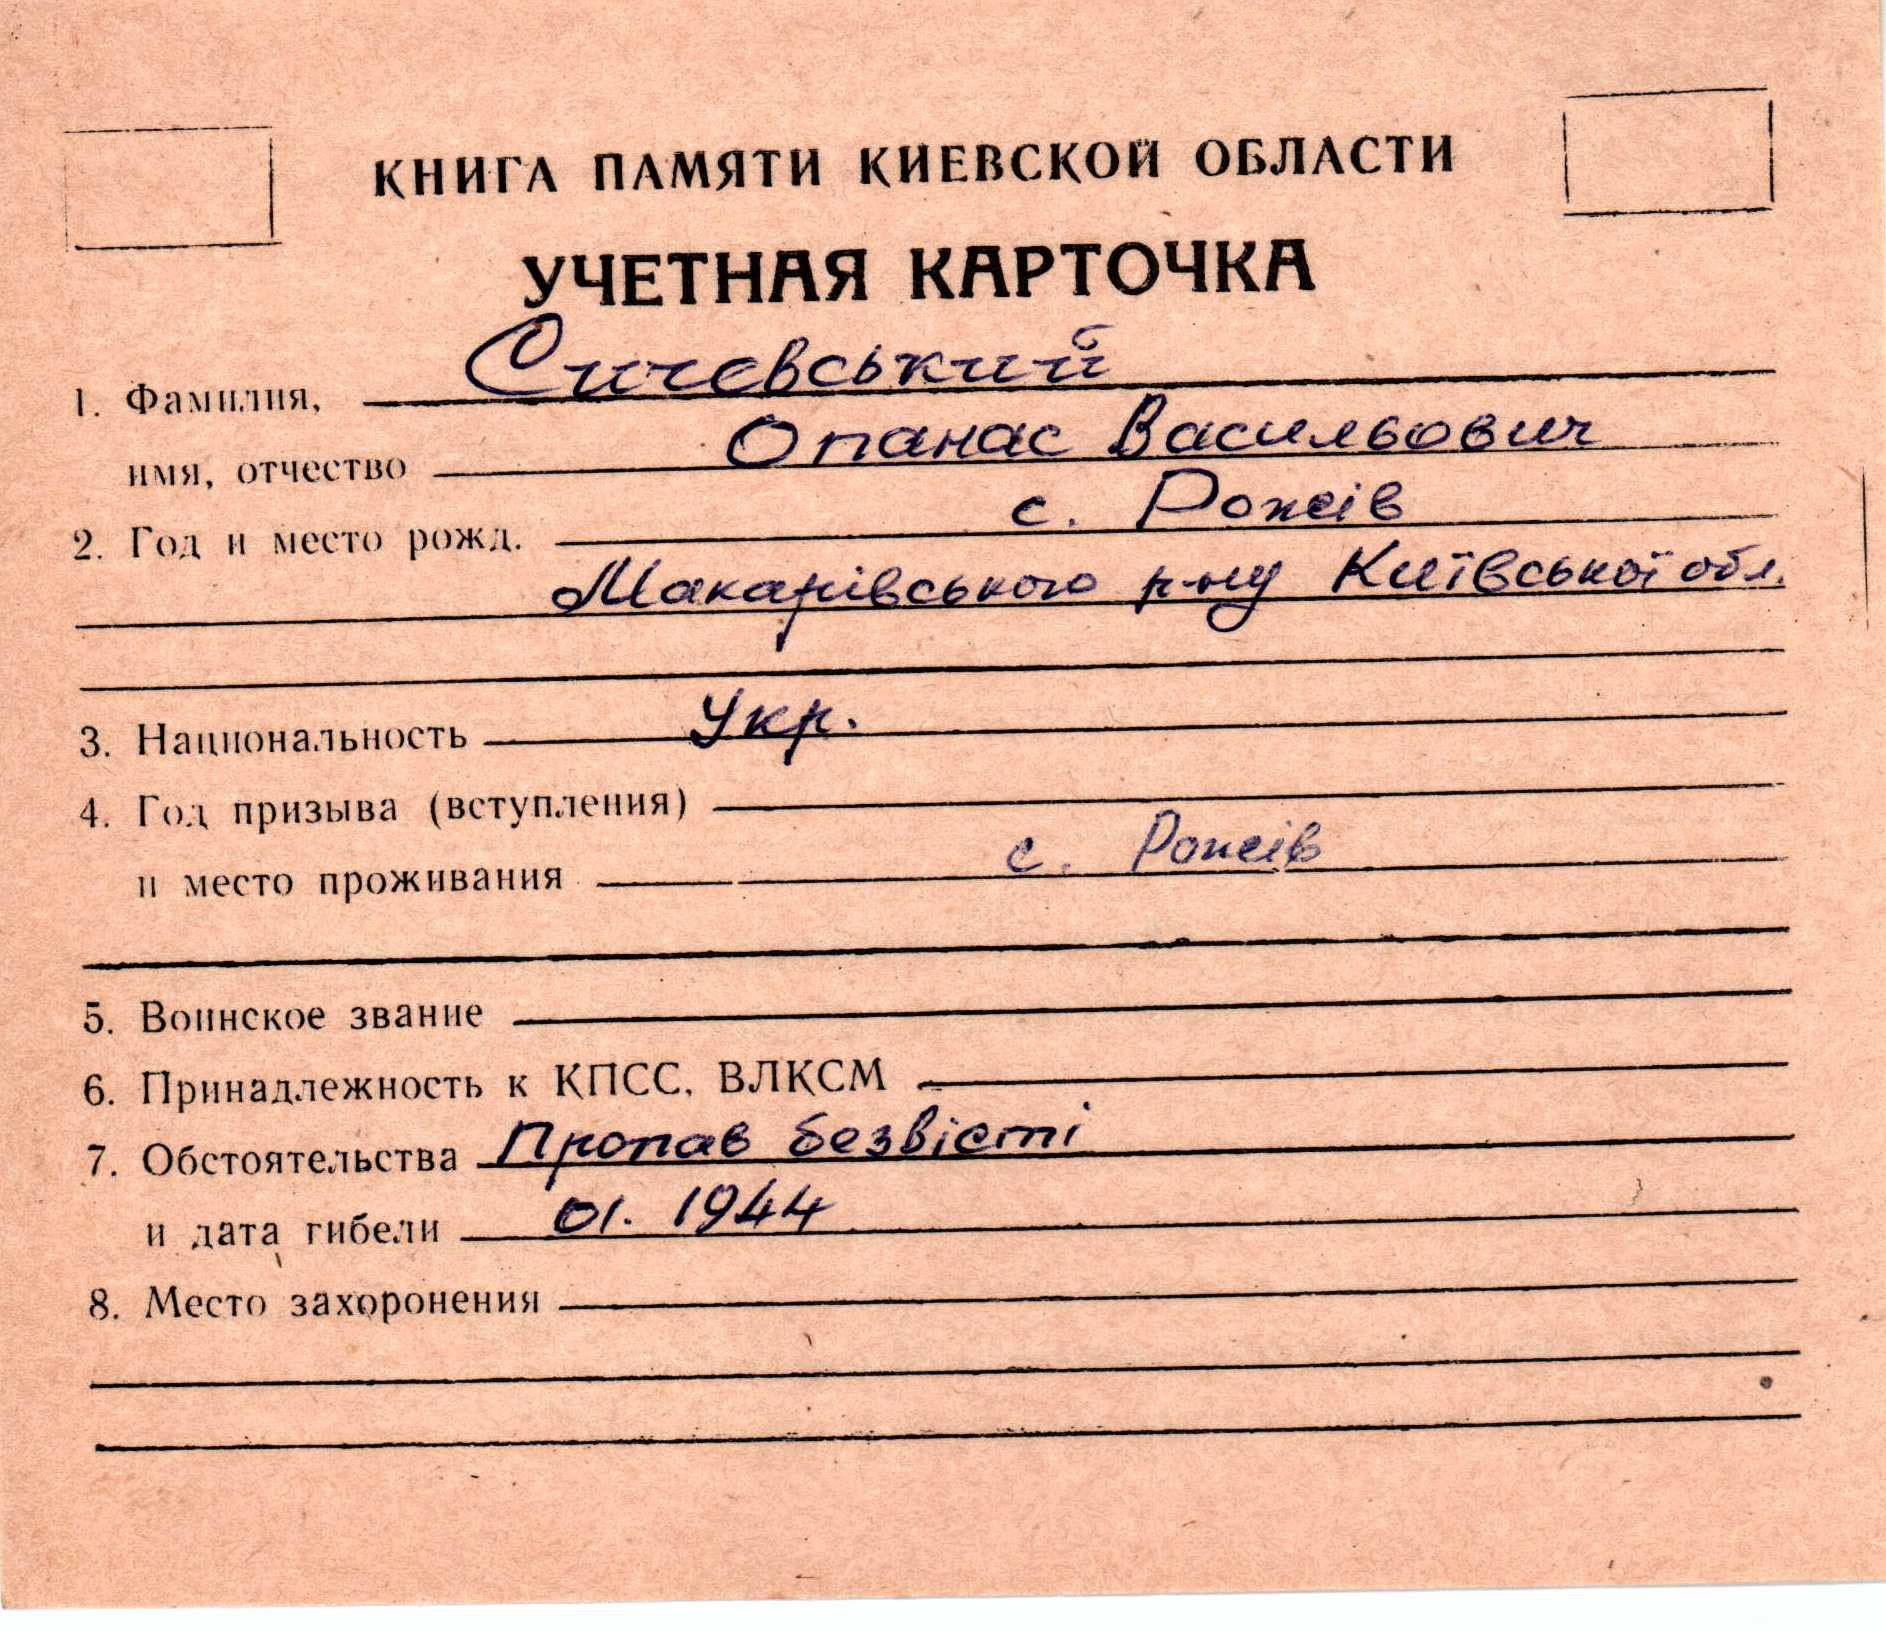 КНИГА ПАМЯТИ КИЕВСКОЙ ОБЛАСТИ
УЧЕТНАЯ КАРТОЧКА
1. Фамилия, Сичевський
имя, отчество Опанас Васильович
2. Год и место рожд. с. Рожів
Макарівського р-ну Київської обл.
3. Национальность Укр.
4. Год призыва (вступления)
и место проживания с. Рожів
5. Воинское звание
6. Принадлежность к КПСС, ВЛКСМ
7. Обстоятельства Пропав безвісті
и дата гибели 01. 1944
8. Место захоронения